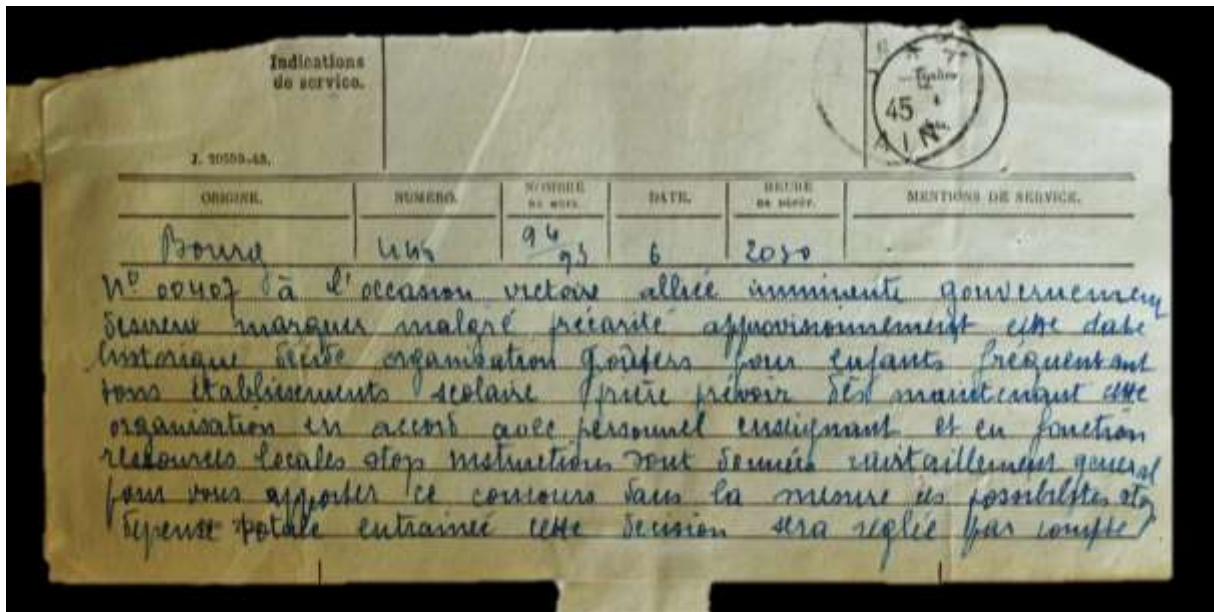 Indications
de service.
45
AIN
J. 20550-43.
ORIGINE. NUMÉRO. NOMBRE DE MOTS. DATE. HEURE DE DÉPÔT. MENTIONS DE SERVICE.
Bourg 94/93 6
N° 00407 à l'occasion victoire alliée imminente gouvernement
désireux marquer malgré précarité approvisionnement cette date
historique décide organisation goûters pour enfants fréquentant
tous établissements scolaire prière prévoir dès maintenant cette
organisation en accord avec personnel enseignant et en fonction
ressources locales stop instructions sont données ravitaillement general
pour vous apporter ce concours dans la mesure des possibilités stop
dépense totale entrainée cette decision sera reglée par compte